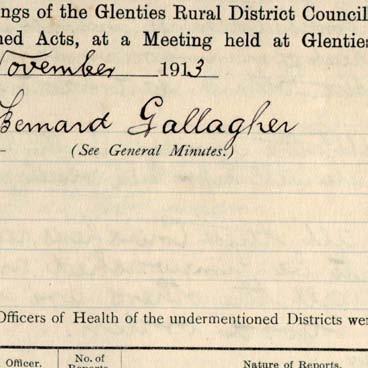 ngs of the Glenties Rural District Council
ned Acts, at a Meeting held at Glenties
November 1913
Bernard Gallagher
(See General Minutes.)
Officers of Health of the undermentioned Districts wer
Officer. No. of Reports. Nature of Reports.